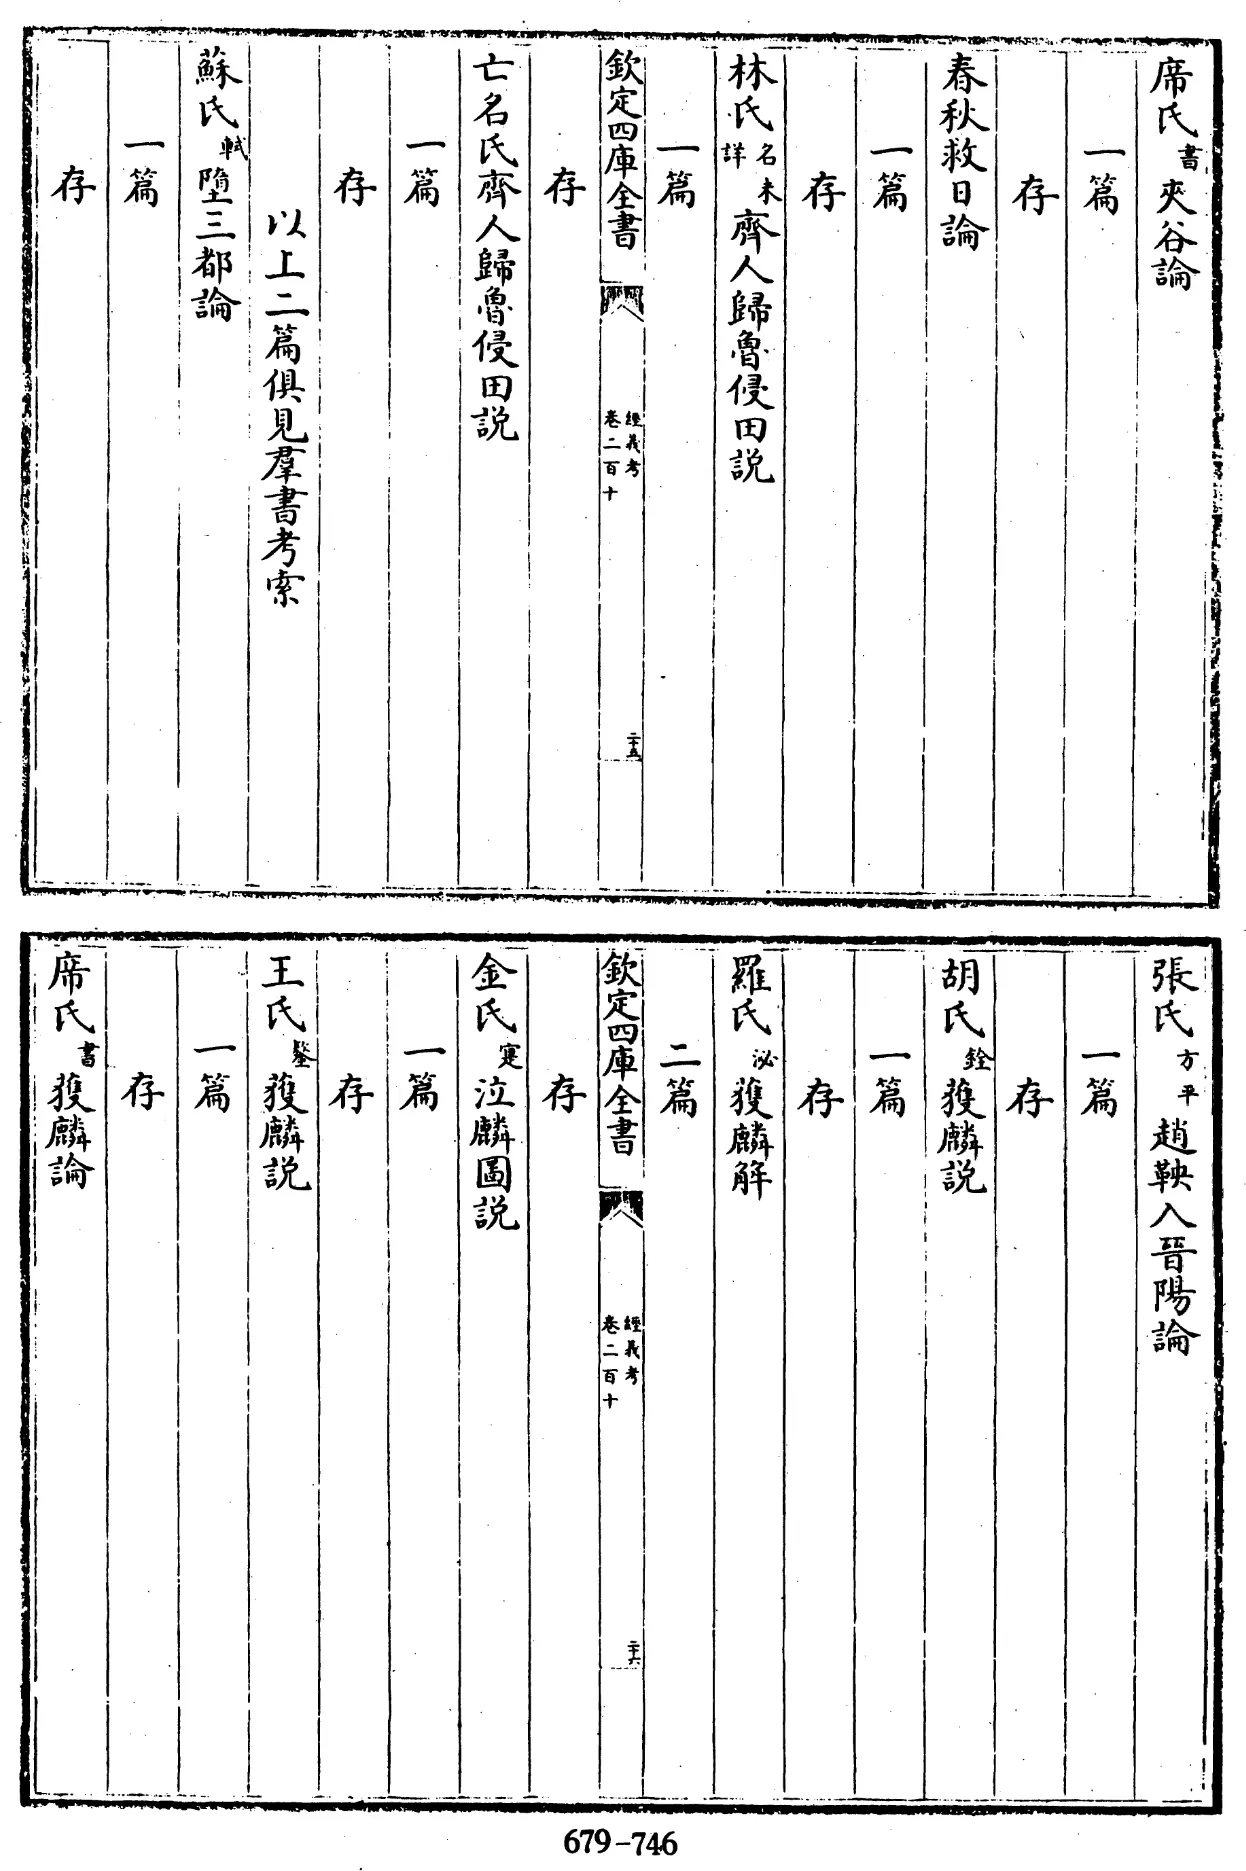 席氏書夾谷論
一篇
存
春秋救日論
一篇
存
林氏名未詳齊人歸魯侵田説
一篇
欽定四庫全書
經義考
卷二百十
二十五
存
亡名氏齊人歸魯侵田説
一篇
存
以上二篇俱見羣書考索
蘇氏軾墮三都論
一篇
存
張氏方平趙鞅入晉陽論
一篇
存
胡氏銓獲麟説
一篇
存
羅氏泌獲麟解
二篇
欽定四庫全書
經義考
卷二百十
二十六
存
金氏寔泣麟圖説
一篇
存
王氏鏊獲麟説
一篇
存
席氏書獲麟論
679-746